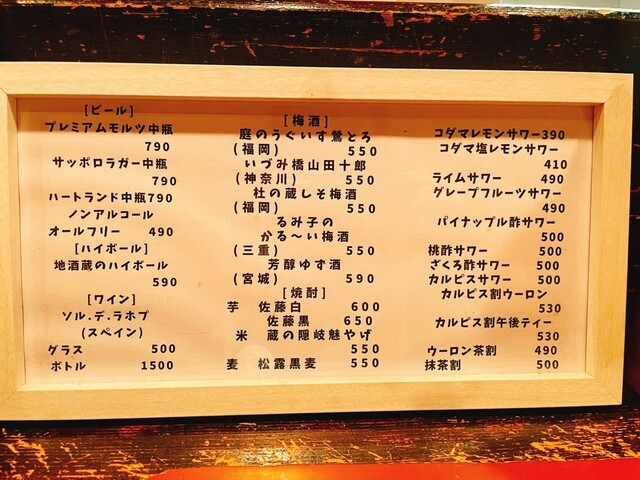 [ビール]
プレミアムモルツ中瓶
790
サッポロラガー中瓶
790
ハートランド中瓶790
ノンアルコール
オールフリー 490
[ハイボール]
地酒蔵のハイボール
590
[ワイン]
ソル.デ.ラホブ
(スペイン)
グラス 500
ボトル 1500
[梅酒]
庭のうぐいす鶯とろ
(福岡) 550
いづみ橋山田十郎
(神奈川) 550
杜の蔵しそ梅酒
(福岡) 550
るみ子の
かる〜い梅酒
(三重) 550
芳醇ゆず酒
(宮城) 590
[焼酎]
芋 佐藤白 600
佐藤黒 650
米 蔵の隠岐魅やげ
550
麦 松露黒麦 550
コダマレモンサワー390
コダマ塩レモンサワー
410
ライムサワー 490
グレープフルーツサワー
490
パイナップル酢サワー
500
桃酢サワー 500
ざくろ酢サワー 500
カルピスサワー 500
カルピス割ウーロン
530
カルピス割午後ティー
530
ウーロン茶割 490
抹茶割 500